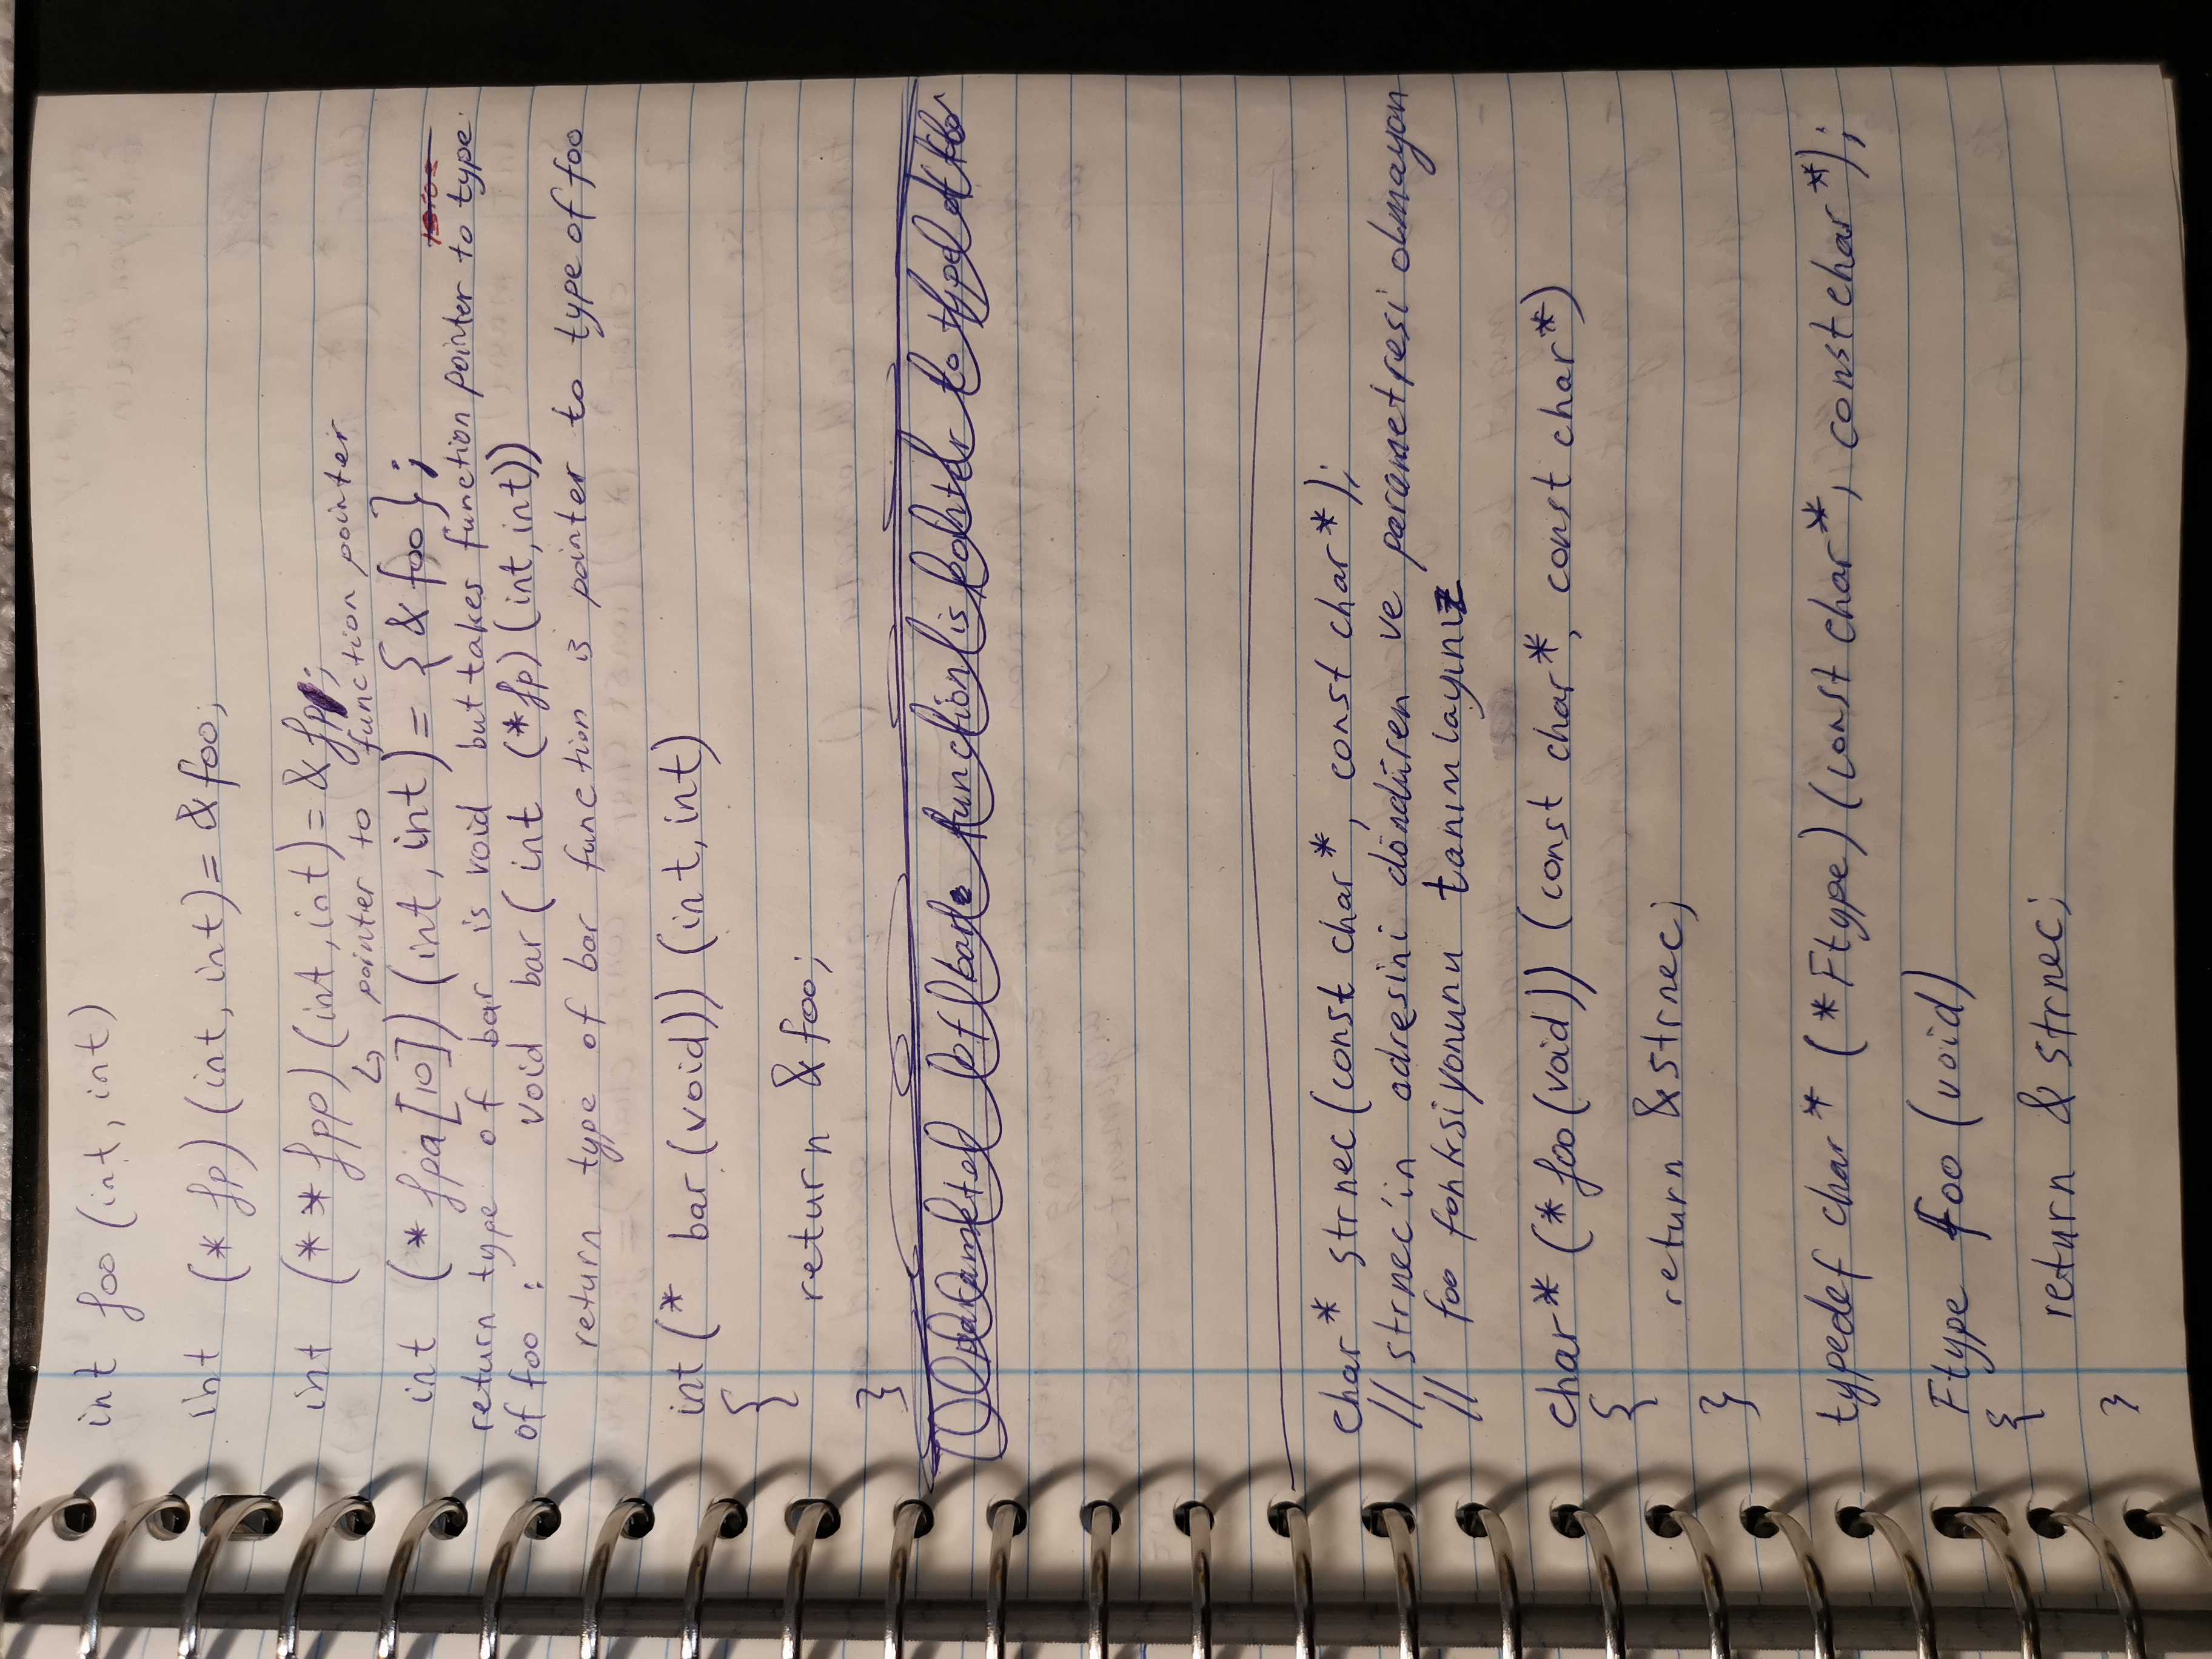 int foo (int, int)
int (* fp) (int, int) = &foo;
int (* * fpp) (int, int) = &fp;
↳ pointer to function pointer
int (* fpa[10]) (int, int) = {&foo};
return type of bar is void but takes function pointer to type
of foo : void bar ( int (*fp) (int, int))
return type of bar function is pointer to type of foo
int (* bar (void)) (int, int)
{
return &foo;
}
parameter of bar function is pointer to type of foo
char* strnec (const char*, const char*);
// strnec'in adresini döndüren ve parametresi olmayan
// foo fonksiyonunu tanımlayınız
char* (* foo (void)) (const char*, const char*)
{
return &strnec;
}
typedef char* (*Ftype) (const char*, const char*);
Ftype foo (void)
{
return & strnec;
}